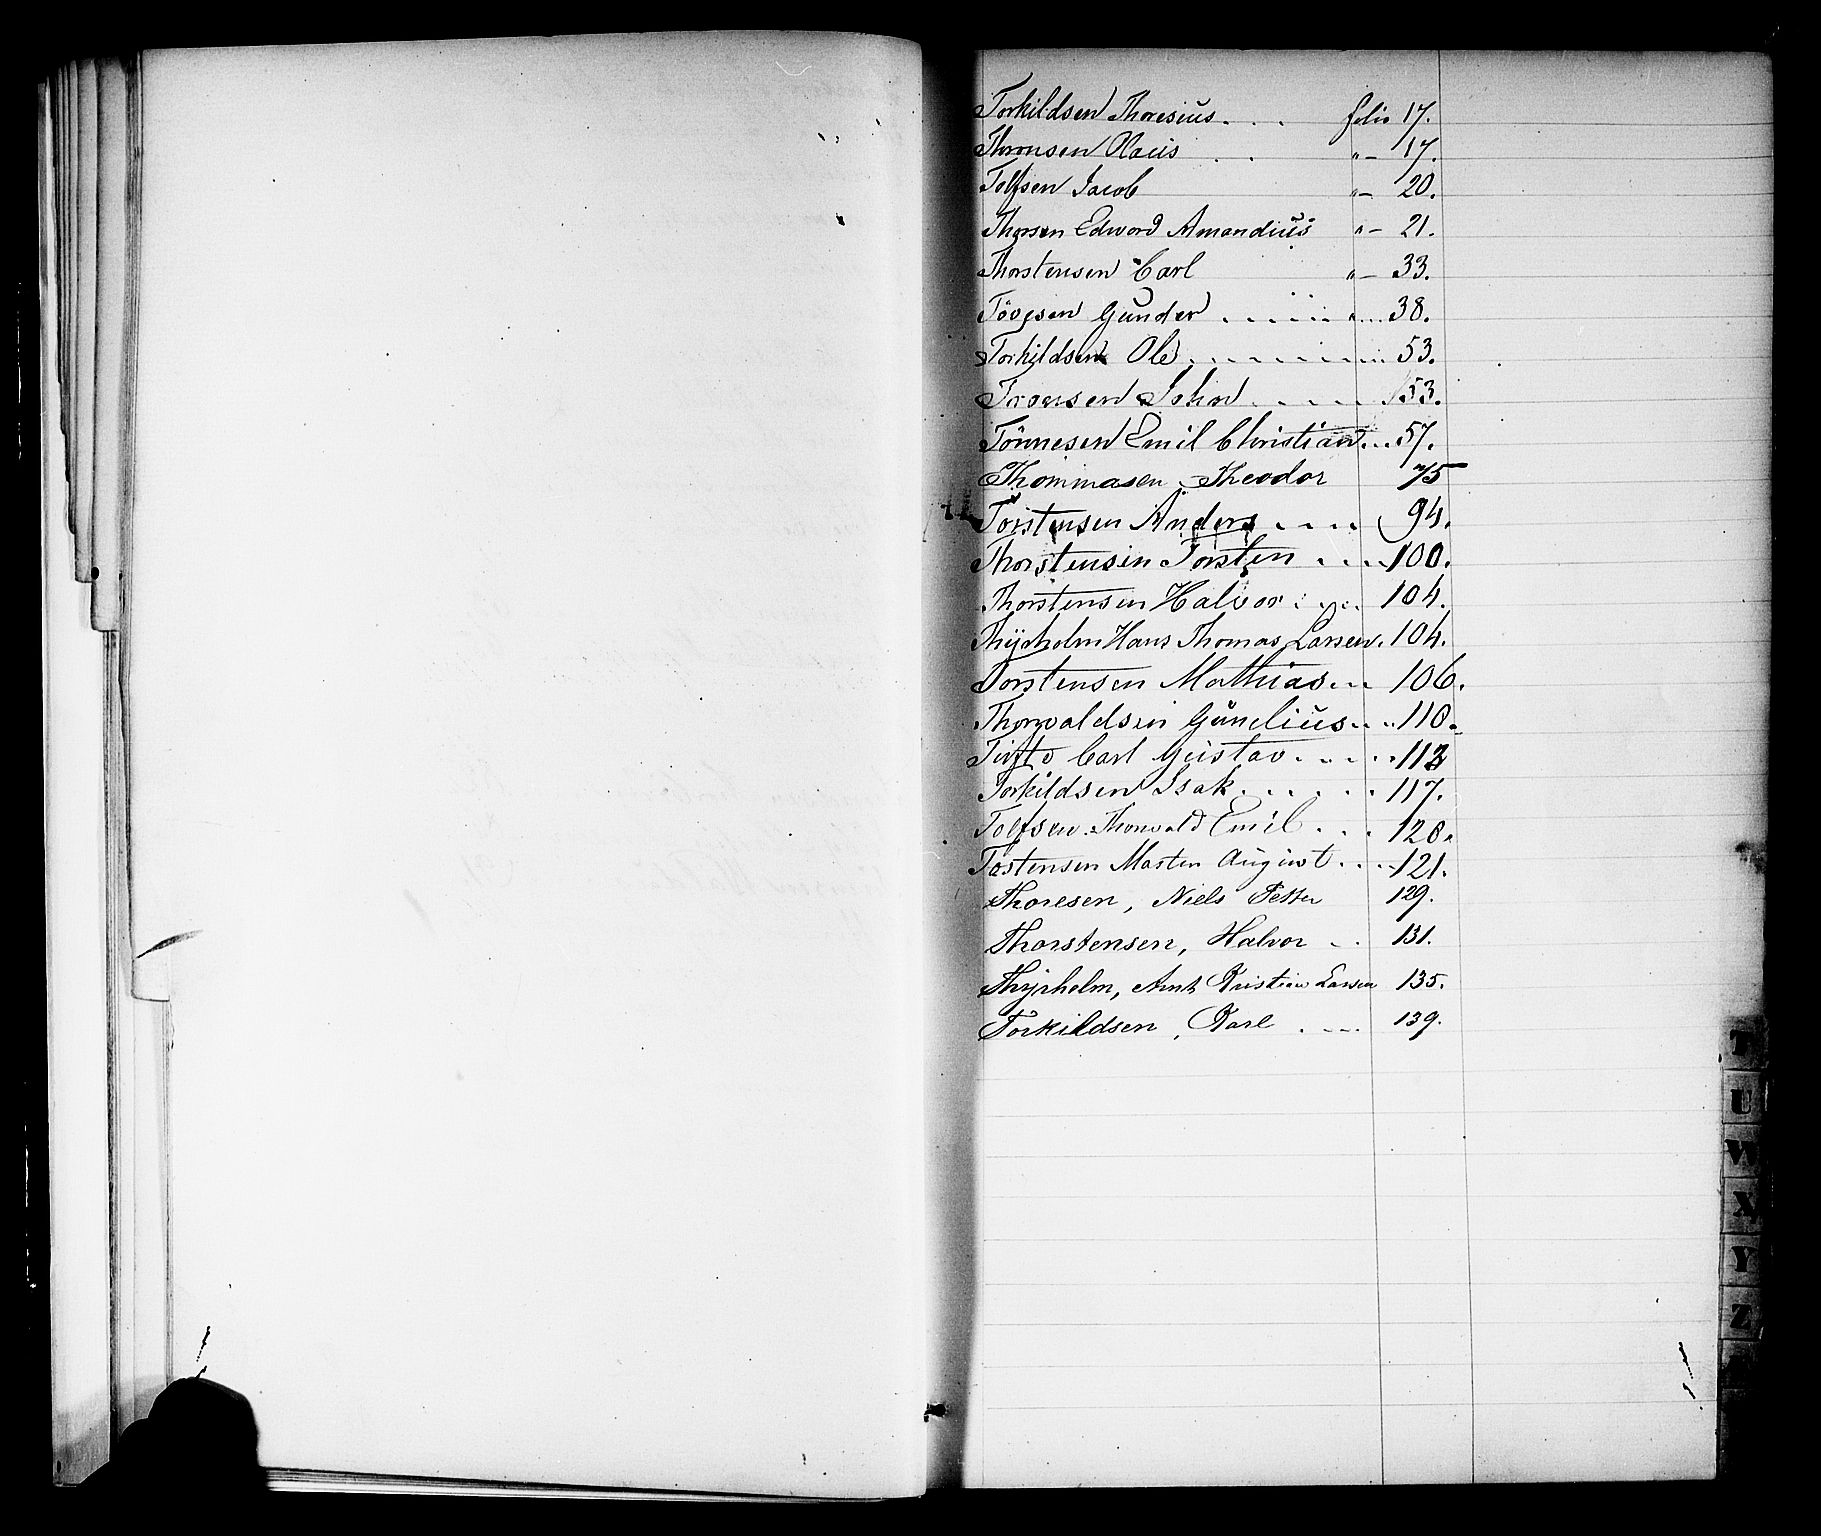 Torkildsen Thoresius. . . folio 17.
Thronsen Olaus . . " – 17.
Tolfsen Jacob " – 20.
Thorsen Edward Amandius " – 21.
Thorstensen Carl " – 33.
Gunder . . . . . . " .... 38.
Torkildsen Ole . . . . . . . 53.
Tronsen John . . . . . 53.
Tönnesen Emil Christian ... 57.
Thommasen Theodor 75
Torstensen Anders . . . . 94.
Thorstensen Torsten . . . . 100.
Thorstensen Halvor . . . . 104.
Thyrholm Hans Thomas Larsen. 104.
Torstensen Mathias ... 106.
Thorvaldsen Gunelius . . . . 110.
Carl Gustav . . . . . 113
Torkildsen Isak . . . . . . 117.
Tolfsen Thorvald Emil . . . 120.
Tostensen Martin August . . . . 121.
Thoresen, Niels Petter 129.
Thorstensen, Halvor . . 131.
Thyrholm, Arnt Kristian Larsen 135.
Torkildsen, Karl . . . . 139.
T
U
W
X
Y
Z